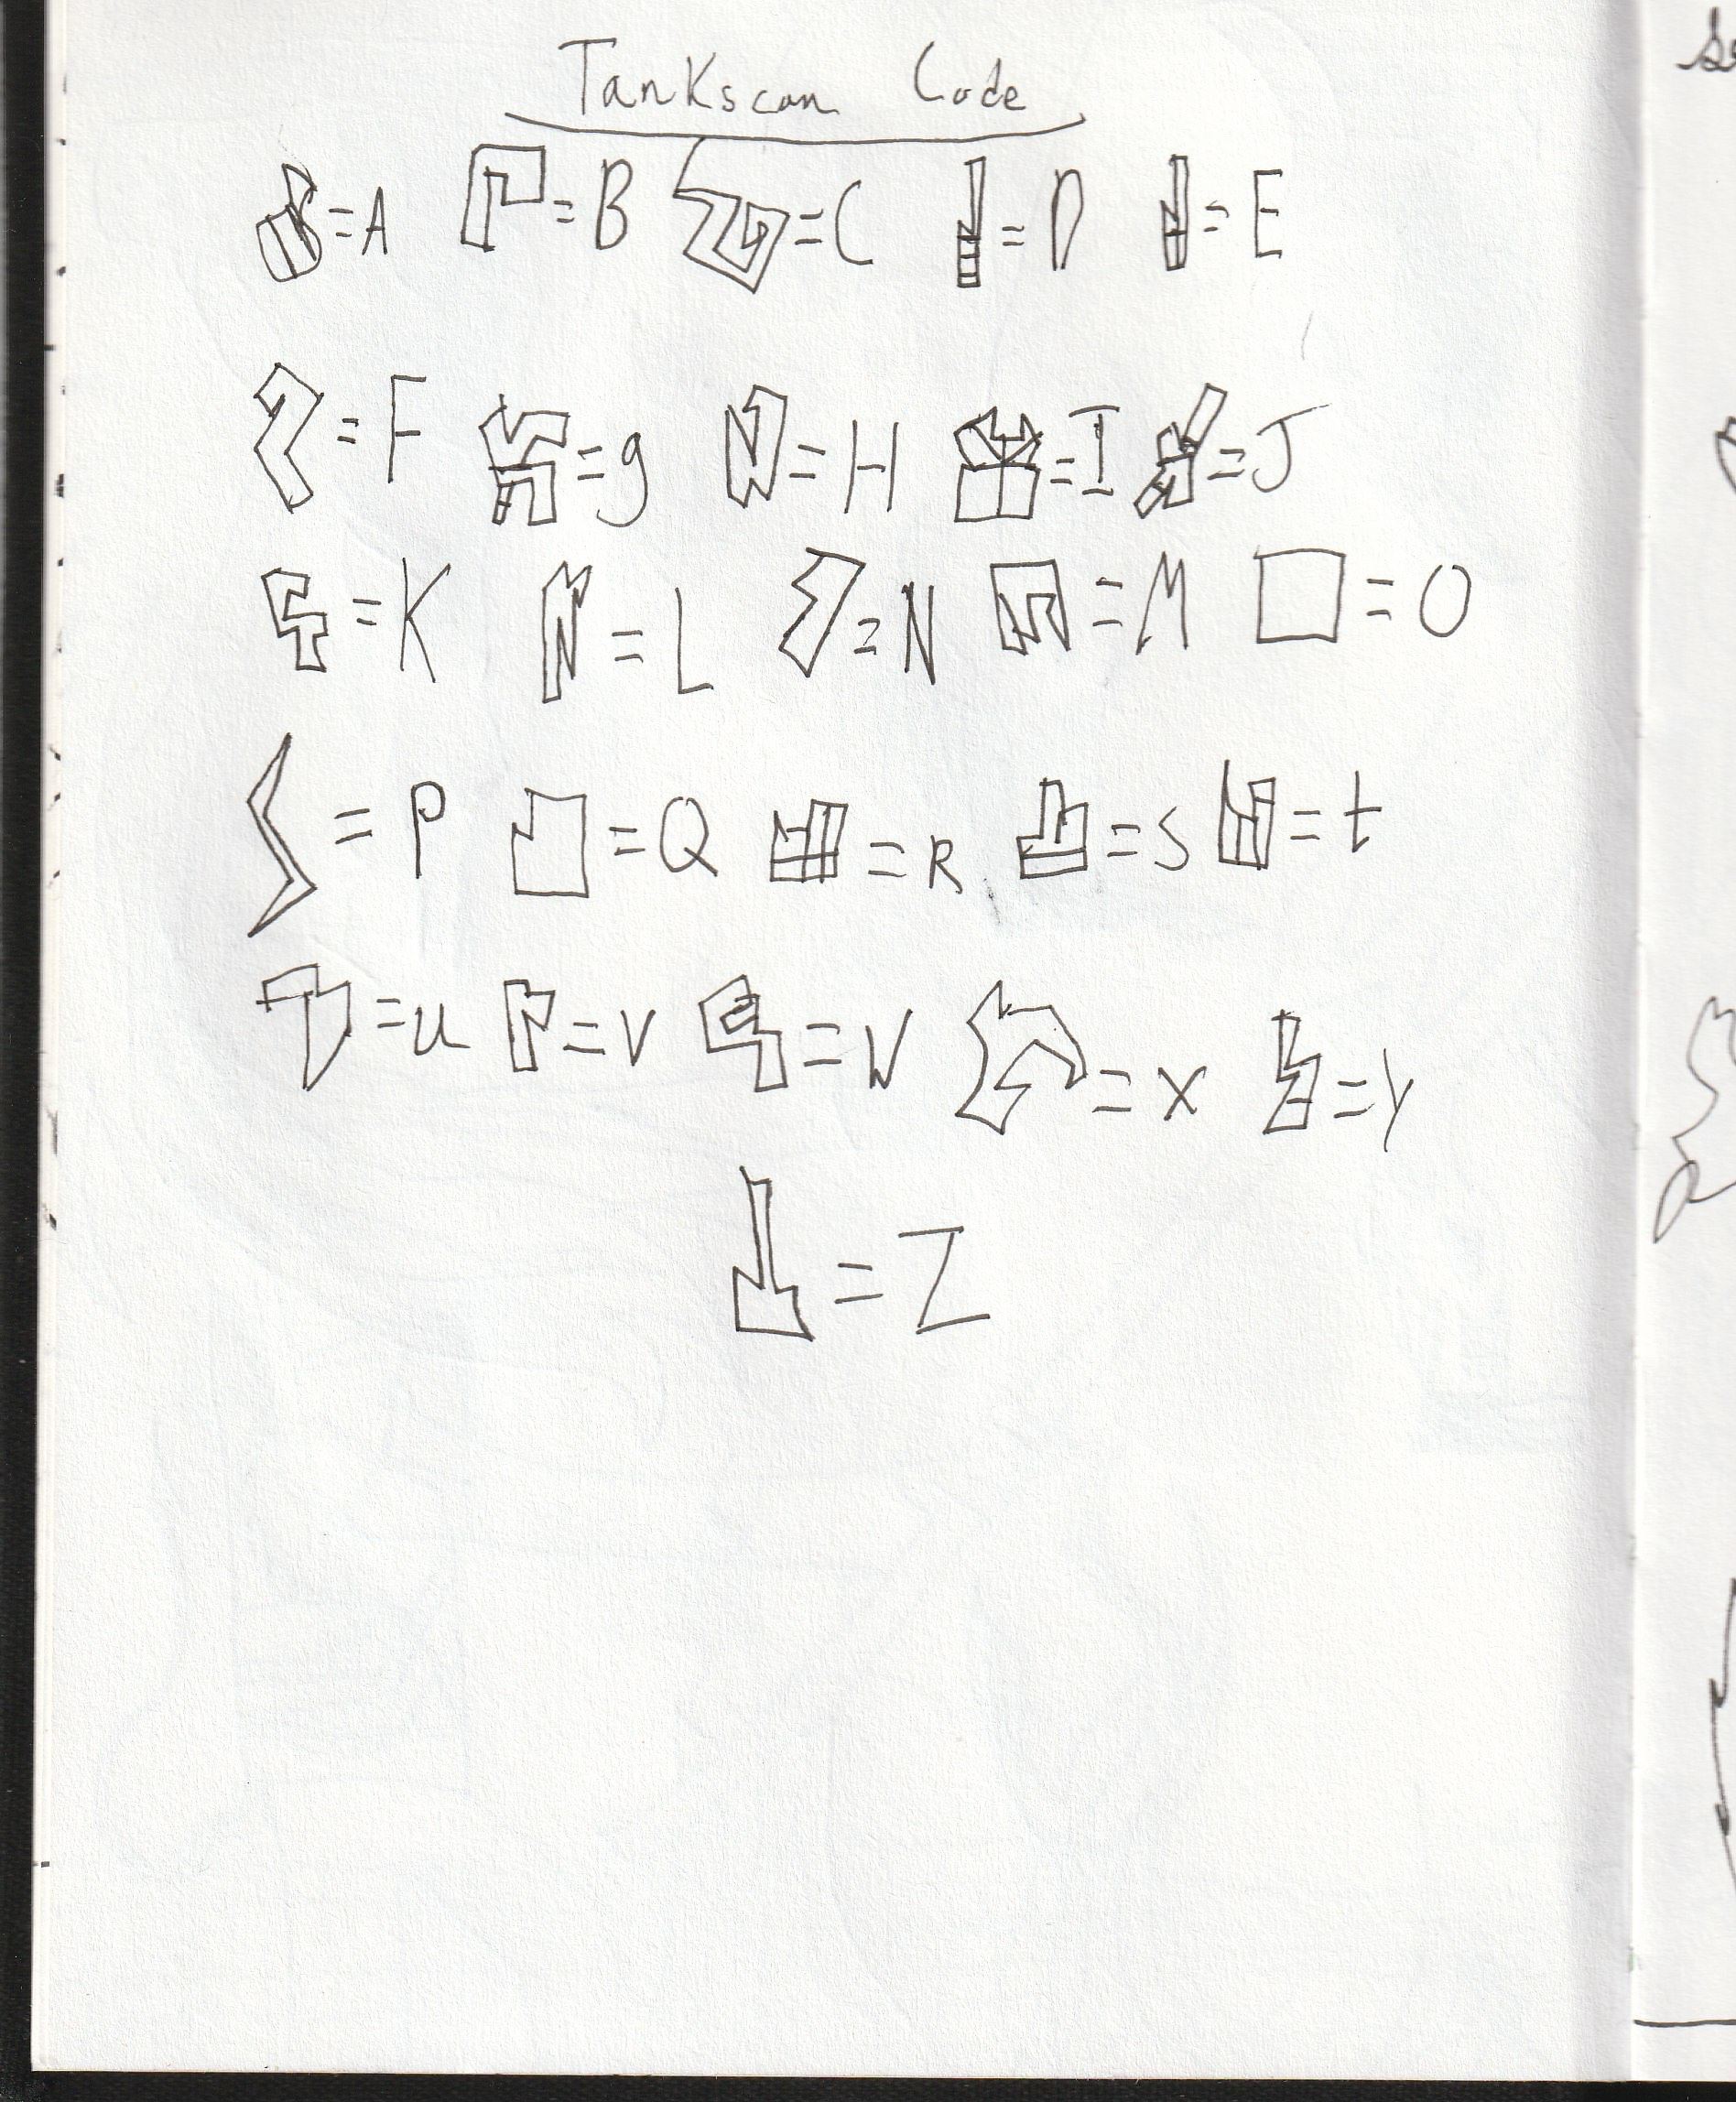 Tankscan Code
=A =B =C =D =E
=F =g =H =I =J
=K =L =N =M =O
=P =Q =R =S =t
=u =v =W =x =y
=Z